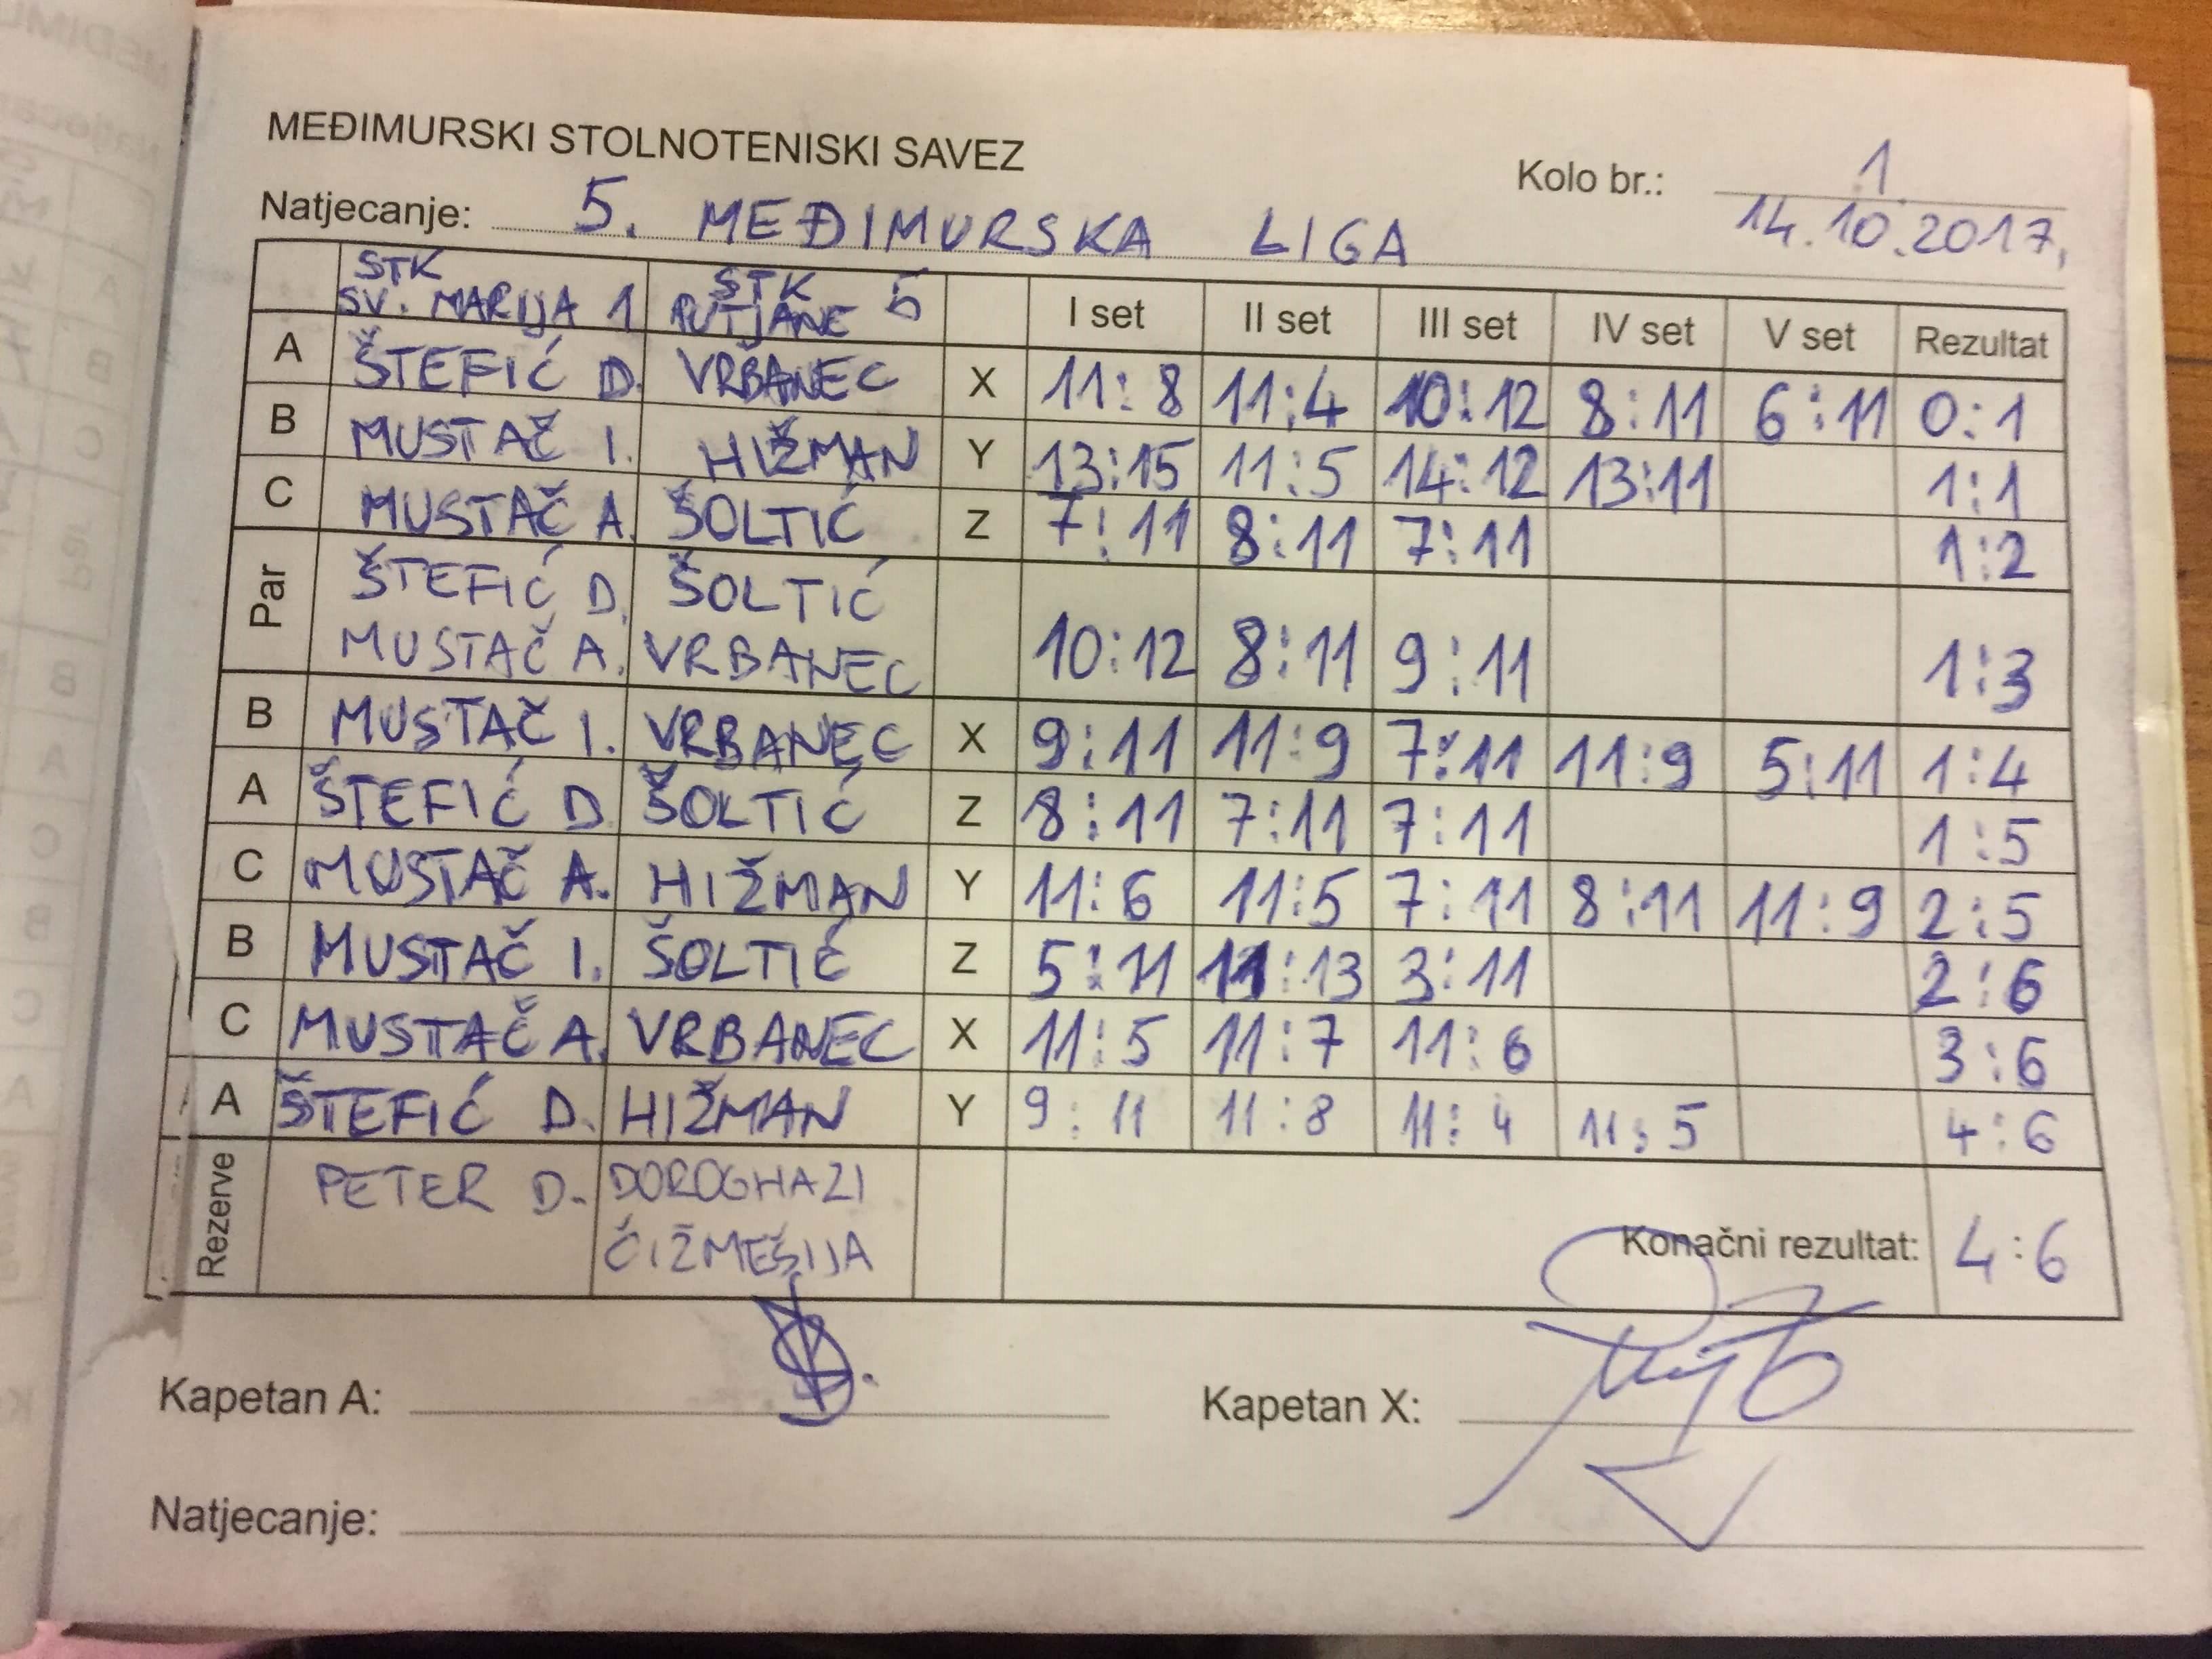 MEĐIMURSKI STOLNOTENISKI SAVEZ
Kolo br.: 1.
Natjecanje: 5. MEĐIMURSKA LIGA 14.10.2017.
STK SV. MARIJA 1 STK PUTJANE 5 I set II set III set IV set V set Rezultat
A ŠTEFIĆ D. VRBANEC X 11:8 11:4 10:12 8:11 6:11 0:1
B MUSTAČ I. HIŽMAN Y 13:15 11:5 14:12 13:11 1:1
C MUSTAČ A. ŠOLTIĆ Z 7:11 8:11 7:11 1:2
Par ŠTEFIĆ D. ŠOLTIĆ
MUSTAČ A. VRBANEC 10:12 8:11 9:11 1:3
B MUSTAČ I. VRBANEC X 9:11 11:9 7:11 11:9 5:11 1:4
A ŠTEFIĆ D. ŠOLTIĆ Z 8:11 7:11 7:11 1:5
C MUSTAČ A. HIŽMAN Y 11:6 11:5 7:11 8:11 11:9 2:5
B MUSTAČ I. ŠOLTIĆ Z 5:11 11:13 3:11 2:6
C MUSTAČ A. VRBANEC X 11:5 11:7 11:6 3:6
A ŠTEFIĆ D. HIŽMAN Y 9:11 11:8 11:4 11:5 4:6
Rezerve PETER D. DOROGHAZI
ČIŽMEŠIJA Konačni rezultat: 4:6
Kapetan A: Kapetan X:
Natjecanje: